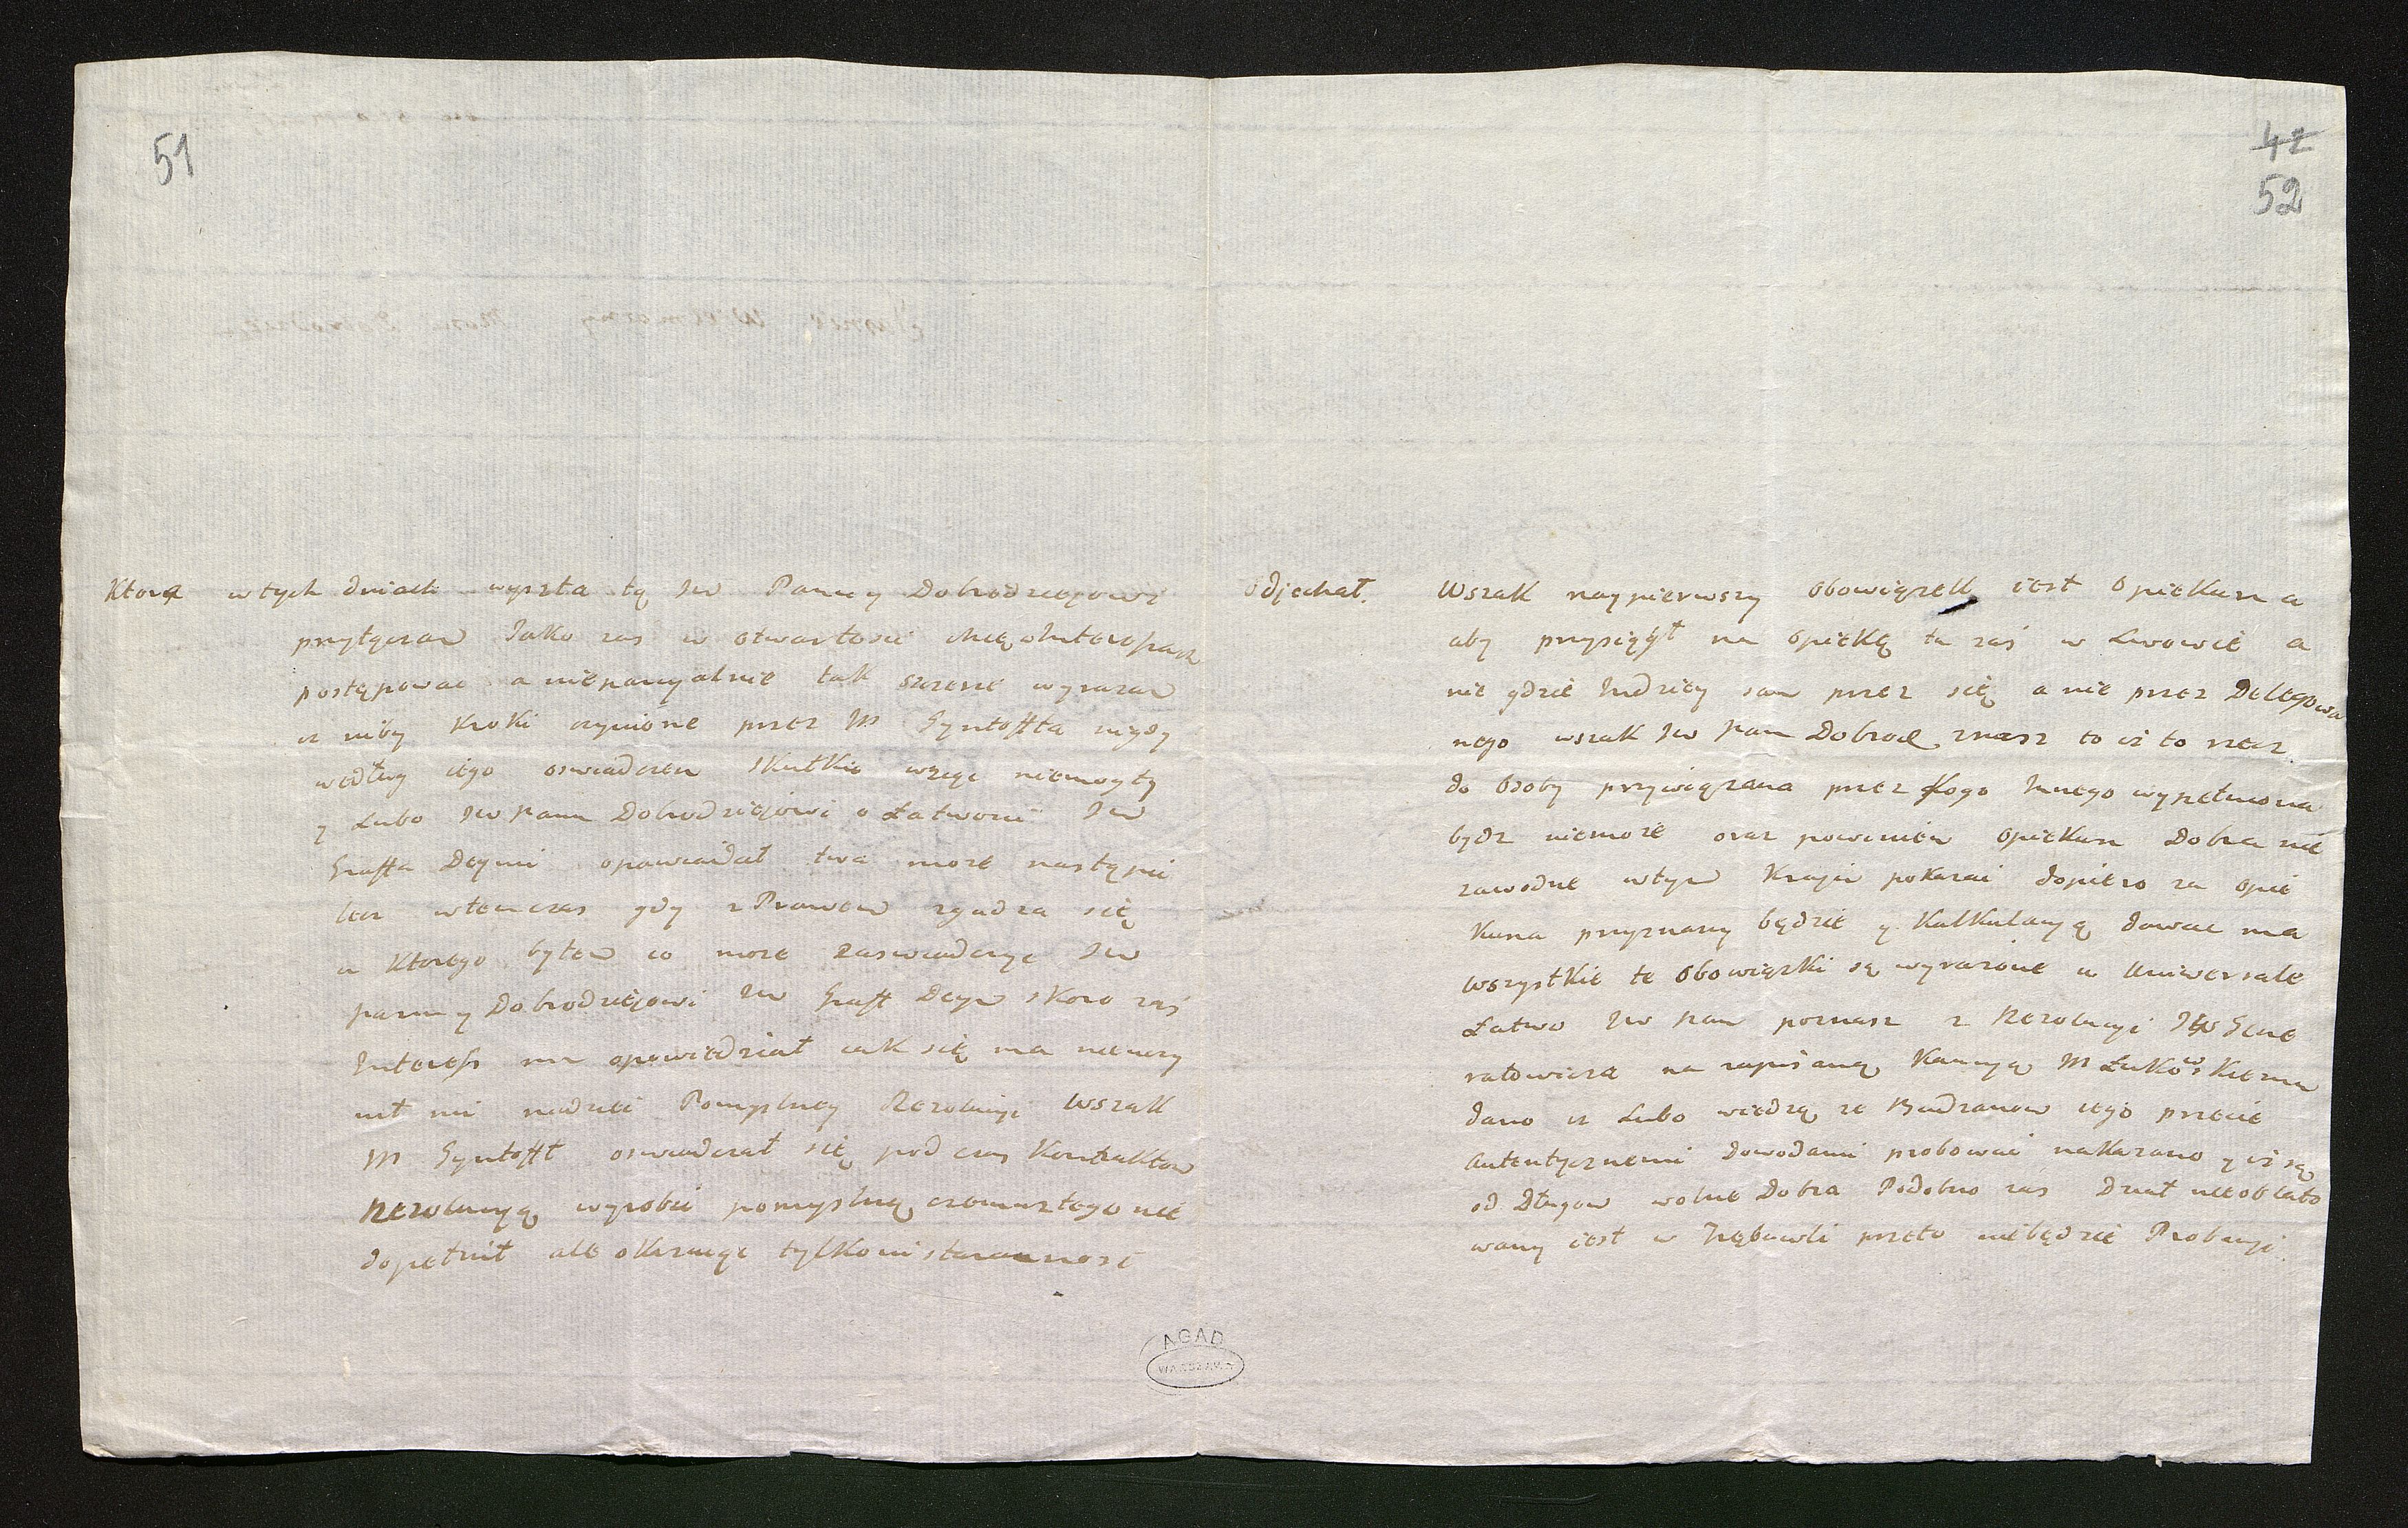 51
Ktorą w tych dniach wyszła tę Jw Panu y Dobrodziejowi
przyłączam Jako zas w otwartosci chcę w Interessach
postępować a nie pasyalnie tak szczerze wyrazam
iz niby kroki czynione przez JM Gyntoffta nigdy
według iego oswiadczen skutku wziąć niemogły
y Lubo Jw Panu Dobrodziejowi o Łatwosci Jw
Graffa Deymi opowiadał ta może nastąpić
lecz wtenczas gdy z Prawem zgadza się
u Ktorego byłem co może zaswiadczyć Jw
Panu y Dobrodziejowi Jw Graff Deym skoro zaś
Interess mu opowiedział iak się ma nieuczy
nił mi nadziei Pomyslney Rezolucyi Wszak
JM Gyntofft oswiadczał się pod czas Kontraktow
Rezolucyą wyrobić pomyslną czemuz tego nie
dopełnił ale okazując tylko niestarannosć
42
52
odjechał. Wszak naypierwszy obowiązek iest Opiekuna
aby przysiągł na Opiekę ta zaś w Lwowie a
nie gdzie Indziey sam przez się a nie przez Delegowa
nego wszak Jw Pan Dobrodz znasz to iż to rzecz
do Osoby przywiązana przez Kogo Innego wypełniona
bydz niemoże oraz powinien Opiekun Dobra nie
zawodne w tym Kraju pokazać dopiero za Opie
kuna przyznany będzie y Kalkulacyą dawać ma
wszystkie te Obowiązki są wyrażone w Uniwersale
Łatwo Jw Pan poznasz z Rezolucyi Jw Gene
rałowicza na zapisaną Kaucyą JM Łukowskiemu
dano iz Lubo wiedzą ze Budzanow iego przecie
Autentycznemi dowodami probować nakazano y iż są
od Długow wolne Dobra Podobno zas Dział nie oblato
wany iest w Trębowli przeto niebędzie Probacyi.
AGAD
WARSZAWA